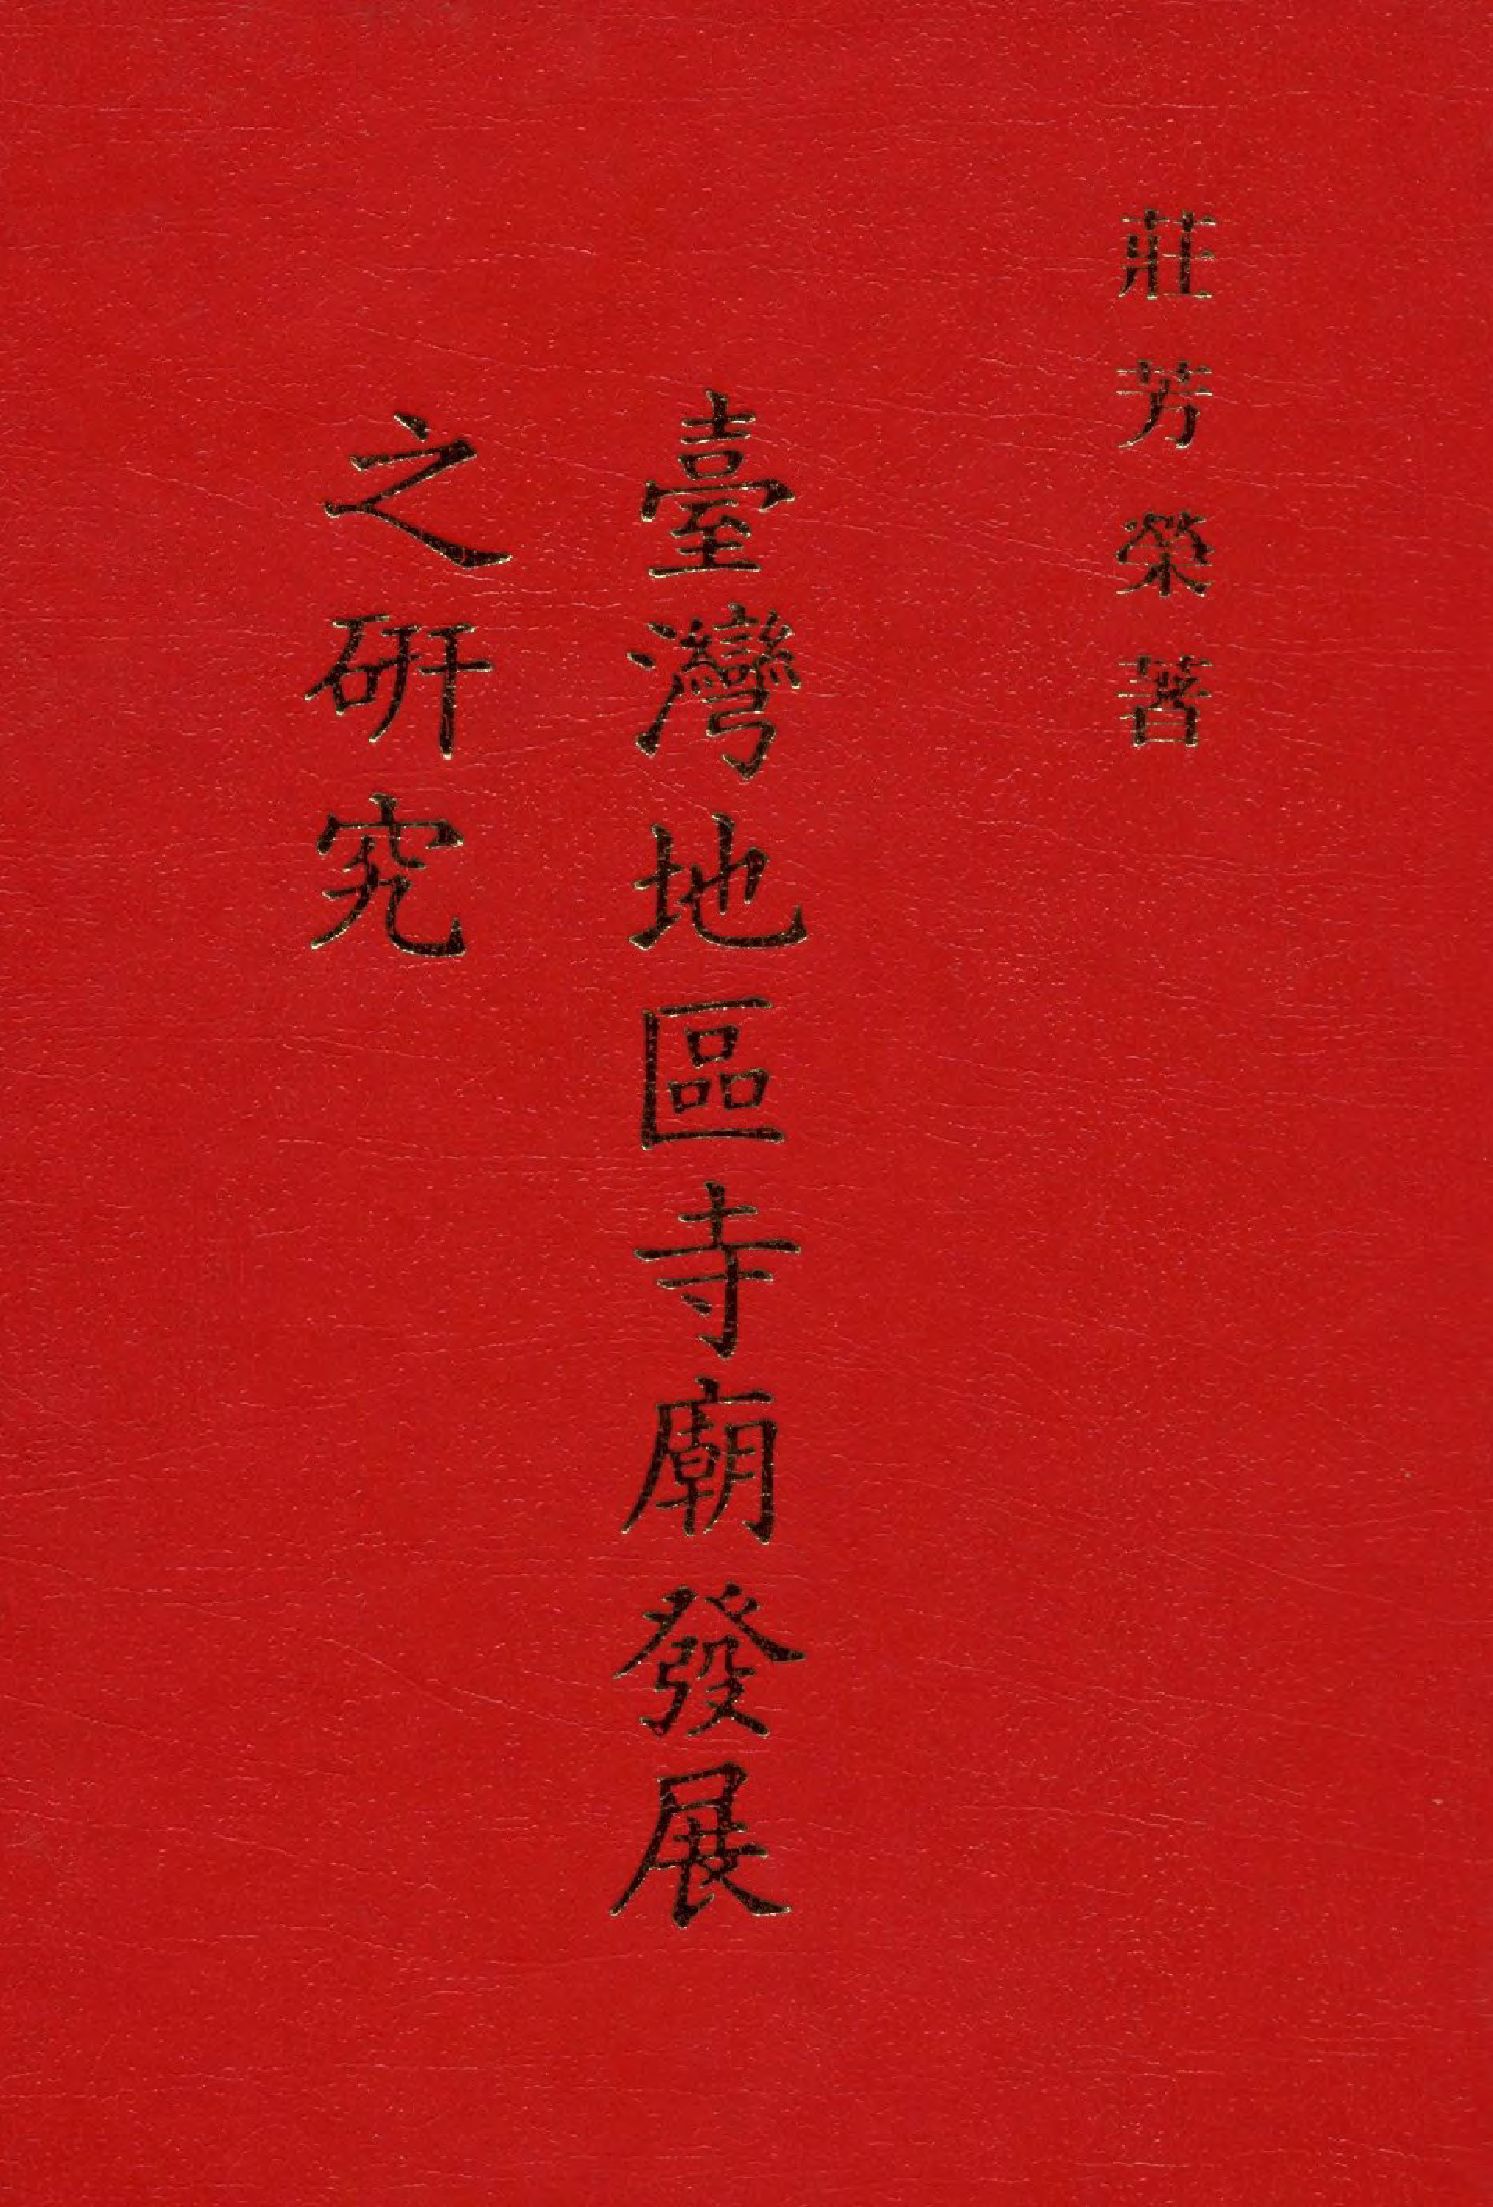 莊芳榮著
臺灣地區寺廟發展
之研究